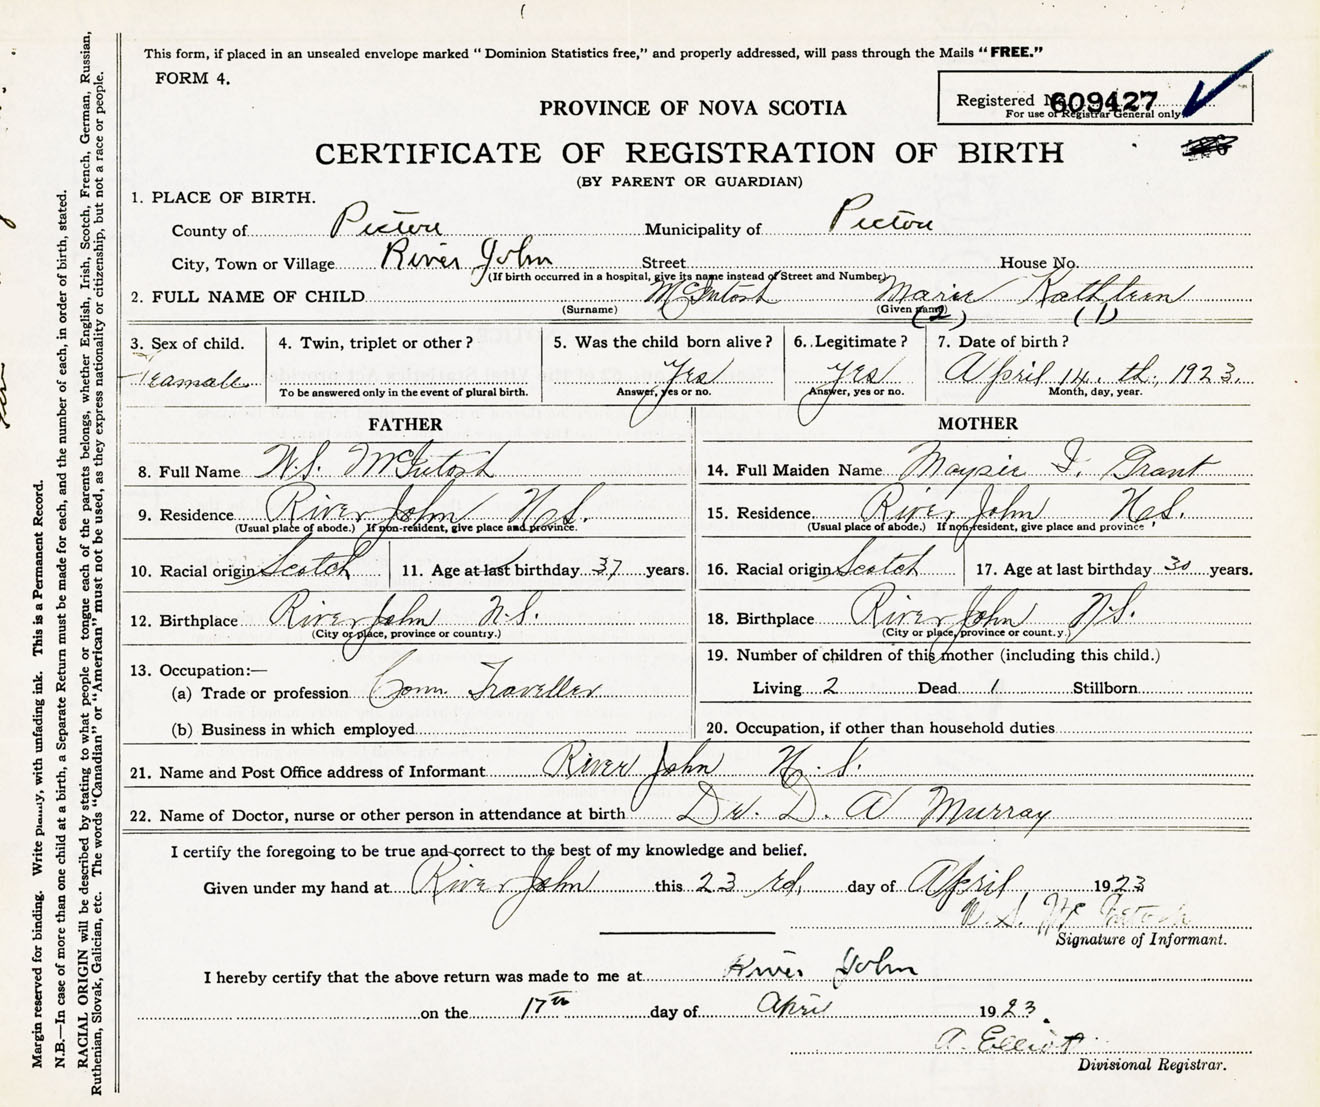 This form, if placed in an unsealed envelope marked "Dominion Statistics free," and properly addressed, will pass through the Mails "FREE."
FORM 4.
Registered No. 609427
For use of Registrar General only
PROVINCE OF NOVA SCOTIA
CERTIFICATE OF REGISTRATION OF BIRTH
(BY PARENT OR GUARDIAN)
1. PLACE OF BIRTH.
County of Pictou Municipality of Pictou
City, Town or Village River John Street House No.
(If birth occurred in a hospital, give its name instead of Street and Number)
2. FULL NAME OF CHILD McIntosh Marie Kathleen
(Surname) (Given name) (2) (1)
3. Sex of child. 4. Twin, triplet or other? 5. Was the child born alive? 6. Legitimate? 7. Date of birth?
Feamale Yes Yes April 14. th., 1923.
To be answered only in the event of plural birth. Answer, yes or no. Answer, yes or no. Month, day, year.
FATHER MOTHER
8. Full Name W.S. McIntosh 14. Full Maiden Name Maysie I. Grant
9. Residence River John N.S. 15. Residence River John N.S.
(Usual place of abode.) If non-resident, give place and province. (Usual place of abode.) If non-resident, give place and province.
10. Racial origin Scotch 11. Age at last birthday 37 years. 16. Racial origin Scotch 17. Age at last birthday 30 years.
12. Birthplace River John N.S. 18. Birthplace River John N.S.
(City or place, province or country.) (City or place, province or count.y.)
13. Occupation:— 19. Number of children of this mother (including this child.)
(a) Trade or profession Com. Traveller Living 2 Dead 1 Stillborn
(b) Business in which employed 20. Occupation, if other than household duties
21. Name and Post Office address of Informant River John N.S.
22. Name of Doctor, nurse or other person in attendance at birth Dr. D. A Murray
I certify the foregoing to be true and correct to the best of my knowledge and belief.
Given under my hand at River John this 23 rd, day of April 1923
W. S. McIntosh
Signature of Informant.
I hereby certify that the above return was made to me at River John
on the 17th day of April 1923.
A. Elliott
Divisional Registrar.
Margin reserved for binding. Write plainly, with unfading ink. This is a Permanent Record.
N.B.—In case of more than one child at a birth, a Separate Return must be made for each, and the number of each, in order of birth, stated.
RACIAL ORIGIN will be described by stating to what people or tongue each of the parents belongs, whether English, Irish, Scotch, French, German, Russian,
Ruthenian, Slovak, Galician, etc. The words "Canadian" or "American" must not be used, as they express nationality or citizenship, but not a race or people.